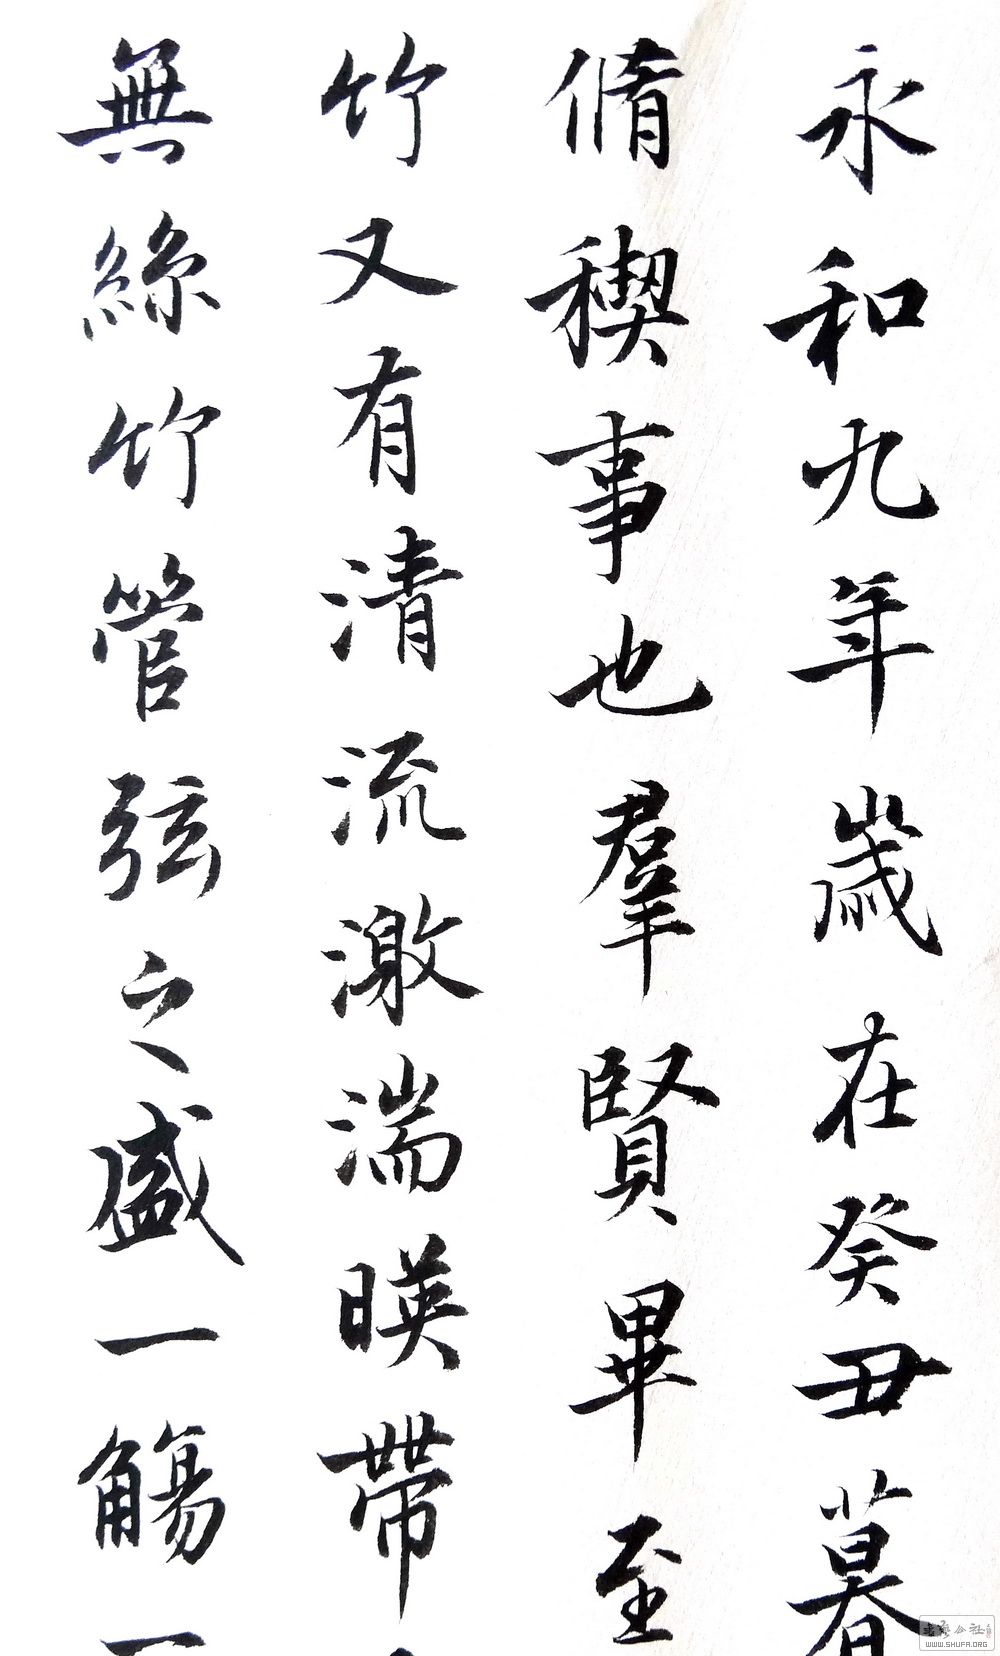 永和九年歲在癸丑暮
脩稧事也羣賢畢至
竹又有清流激湍暎帶
無絲竹管弦之盛一觴一
WWW.SHUFA.ORG